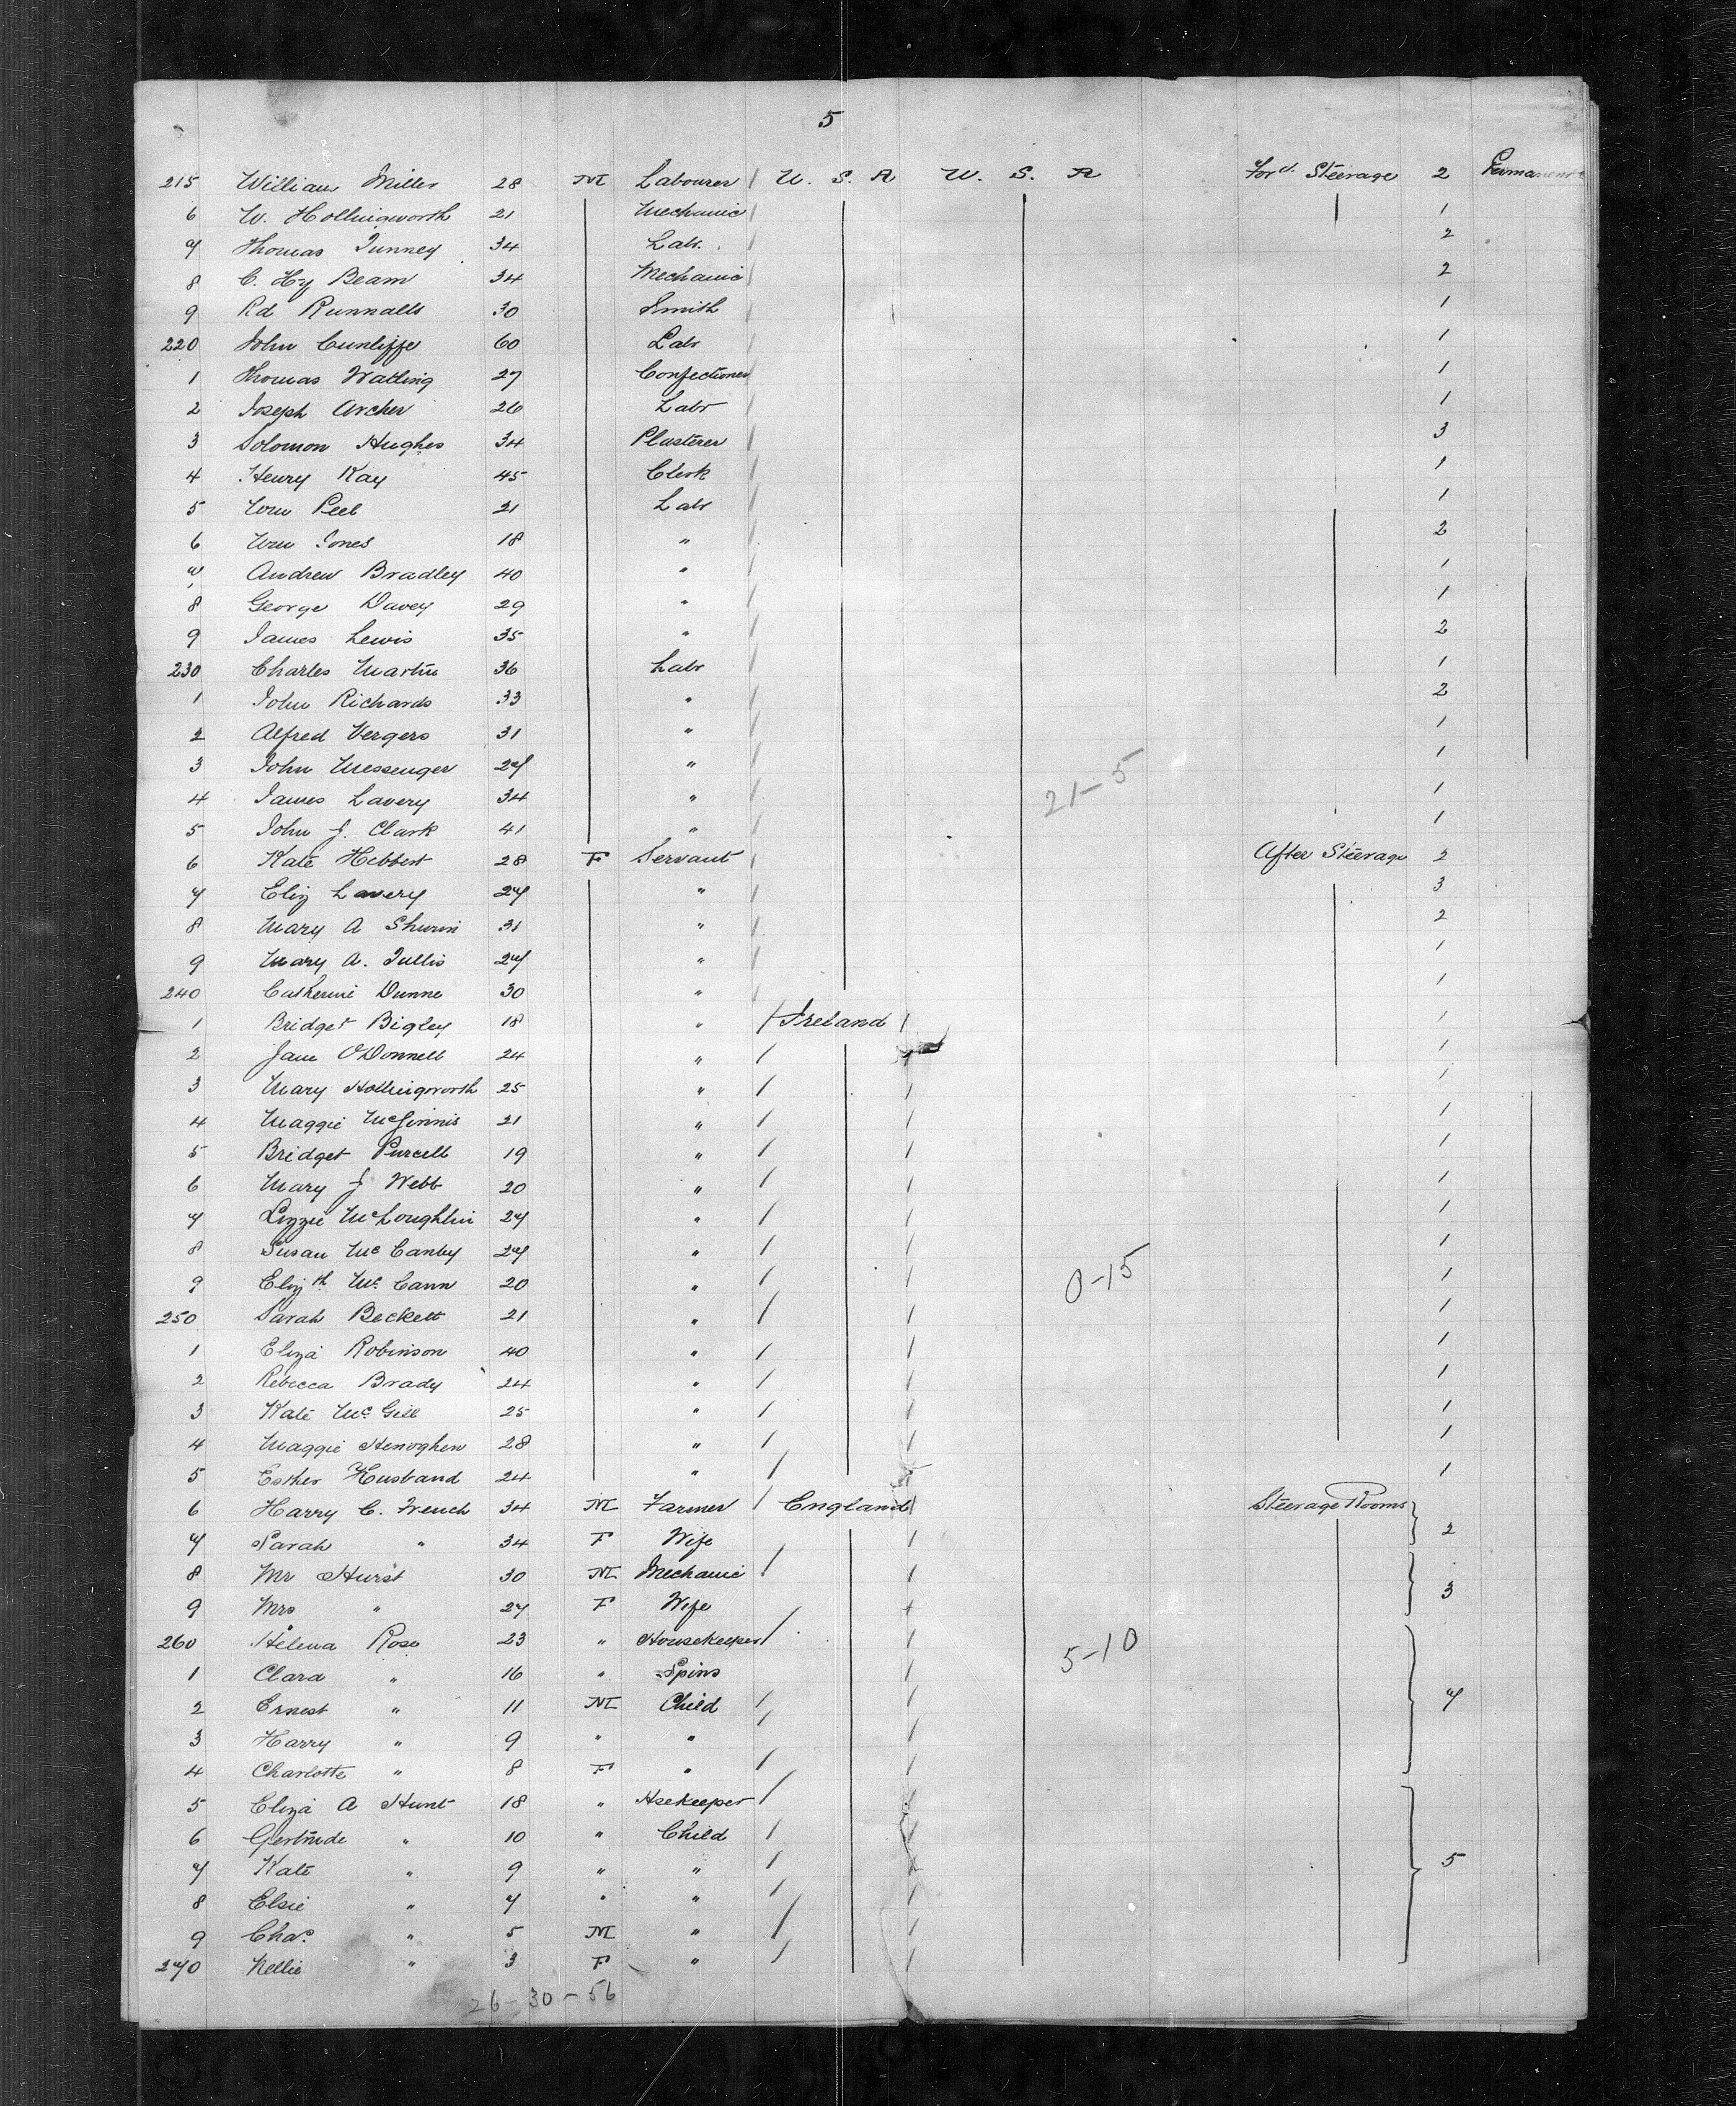 5
215 William Miller 28 M Labourer / U. S. A U. S. A For'd. Steerage 2 Permanent
6 W. Hollingworth 21 Mechanic / 1
7 Thomas Tunney 34 Labr. / 2
8 C. Hy Beam 34 Mechanic / 2
9 Rd Runnalls 30 Smith / 1
220 John Cunliffe 60 Labr / 1
1 Thomas Watling 27 Confectioner / 1
2 Joseph Archer 26 Labr / 1
3 Solomon Hughes 34 Plasterer / 3
4 Henry Kay 45 Clerk / 1
5 Wm Peel 21 Labr / 1
6 Wm Jones 18 " / 2
7 Andrew Bradley 40 " / 1
8 George Davey 29 " / 1
9 James Lewis 35 " / 2
230 Charles Martin 36 Labr / 1
1 John Richards 33 " / 2
2 Alfred Vergers 31 " / 1
3 John Messenger 27 " / 1
4 James Lavery 34 " / 21-5 1
5 John J. Clark 41 " / 1
6 Kate Hebbert 28 F Servant / After Steerage 2
7 Eliz Lavery 27 " / 3
8 Mary A 31 " / 2
9 Mary A. Tullis 27 " / 1
240 Catherine Dunne 30 " / 1
1 Bridget Bigley 18 " / Ireland / 1
2 Jane O'Donnell 24 " / / 1
3 Mary Hollingworth 25 " / / 1
4 Maggie McGinnis 21 " / / 1
5 Bridget Purcell 19 " / / 1
6 Mary J Webb 20 " / / 1
7 Lizzie McLoughlin 27 " / / 1
8 Susan Mc Canby 27 " / / 1
9 Elizth Mc. Cann 20 " / / 0-15 1
250 Sarah Beckett 21 " / / 1
1 Eliza Robinson 40 " / / 1
2 Rebecca Brady 24 " / / 1
3 Kate Mc. Gill 25 " / / 1
4 Maggie Henoghen 28 " / / 1
5 Esther Husband 24 " / / 1
6 Harry C. French 34 M Farmer / England / Steerage Rooms
7 Sarah " 34 F Wife / 2
8 Mr Hurst 30 M Mechanic / /
9 Mrs " 27 F Wife / 3
260 Helena Rose 23 " Housekeeper / / 5-10
1 Clara " 16 " Spins /
2 Ernest " 11 M Child / / 7
3 Harry " 9 " " / /
4 Charlotte " 8 F " / /
5 Eliza A Hunt 18 " Hsekeeper / /
6 Gertrude " 10 " Child / /
7 Kate " 9 " " / / 5
8 Elsie " 7 " " / /
9 Chas. " 5 M " / /
270 Nellie " 3 F " / /
26-30-56